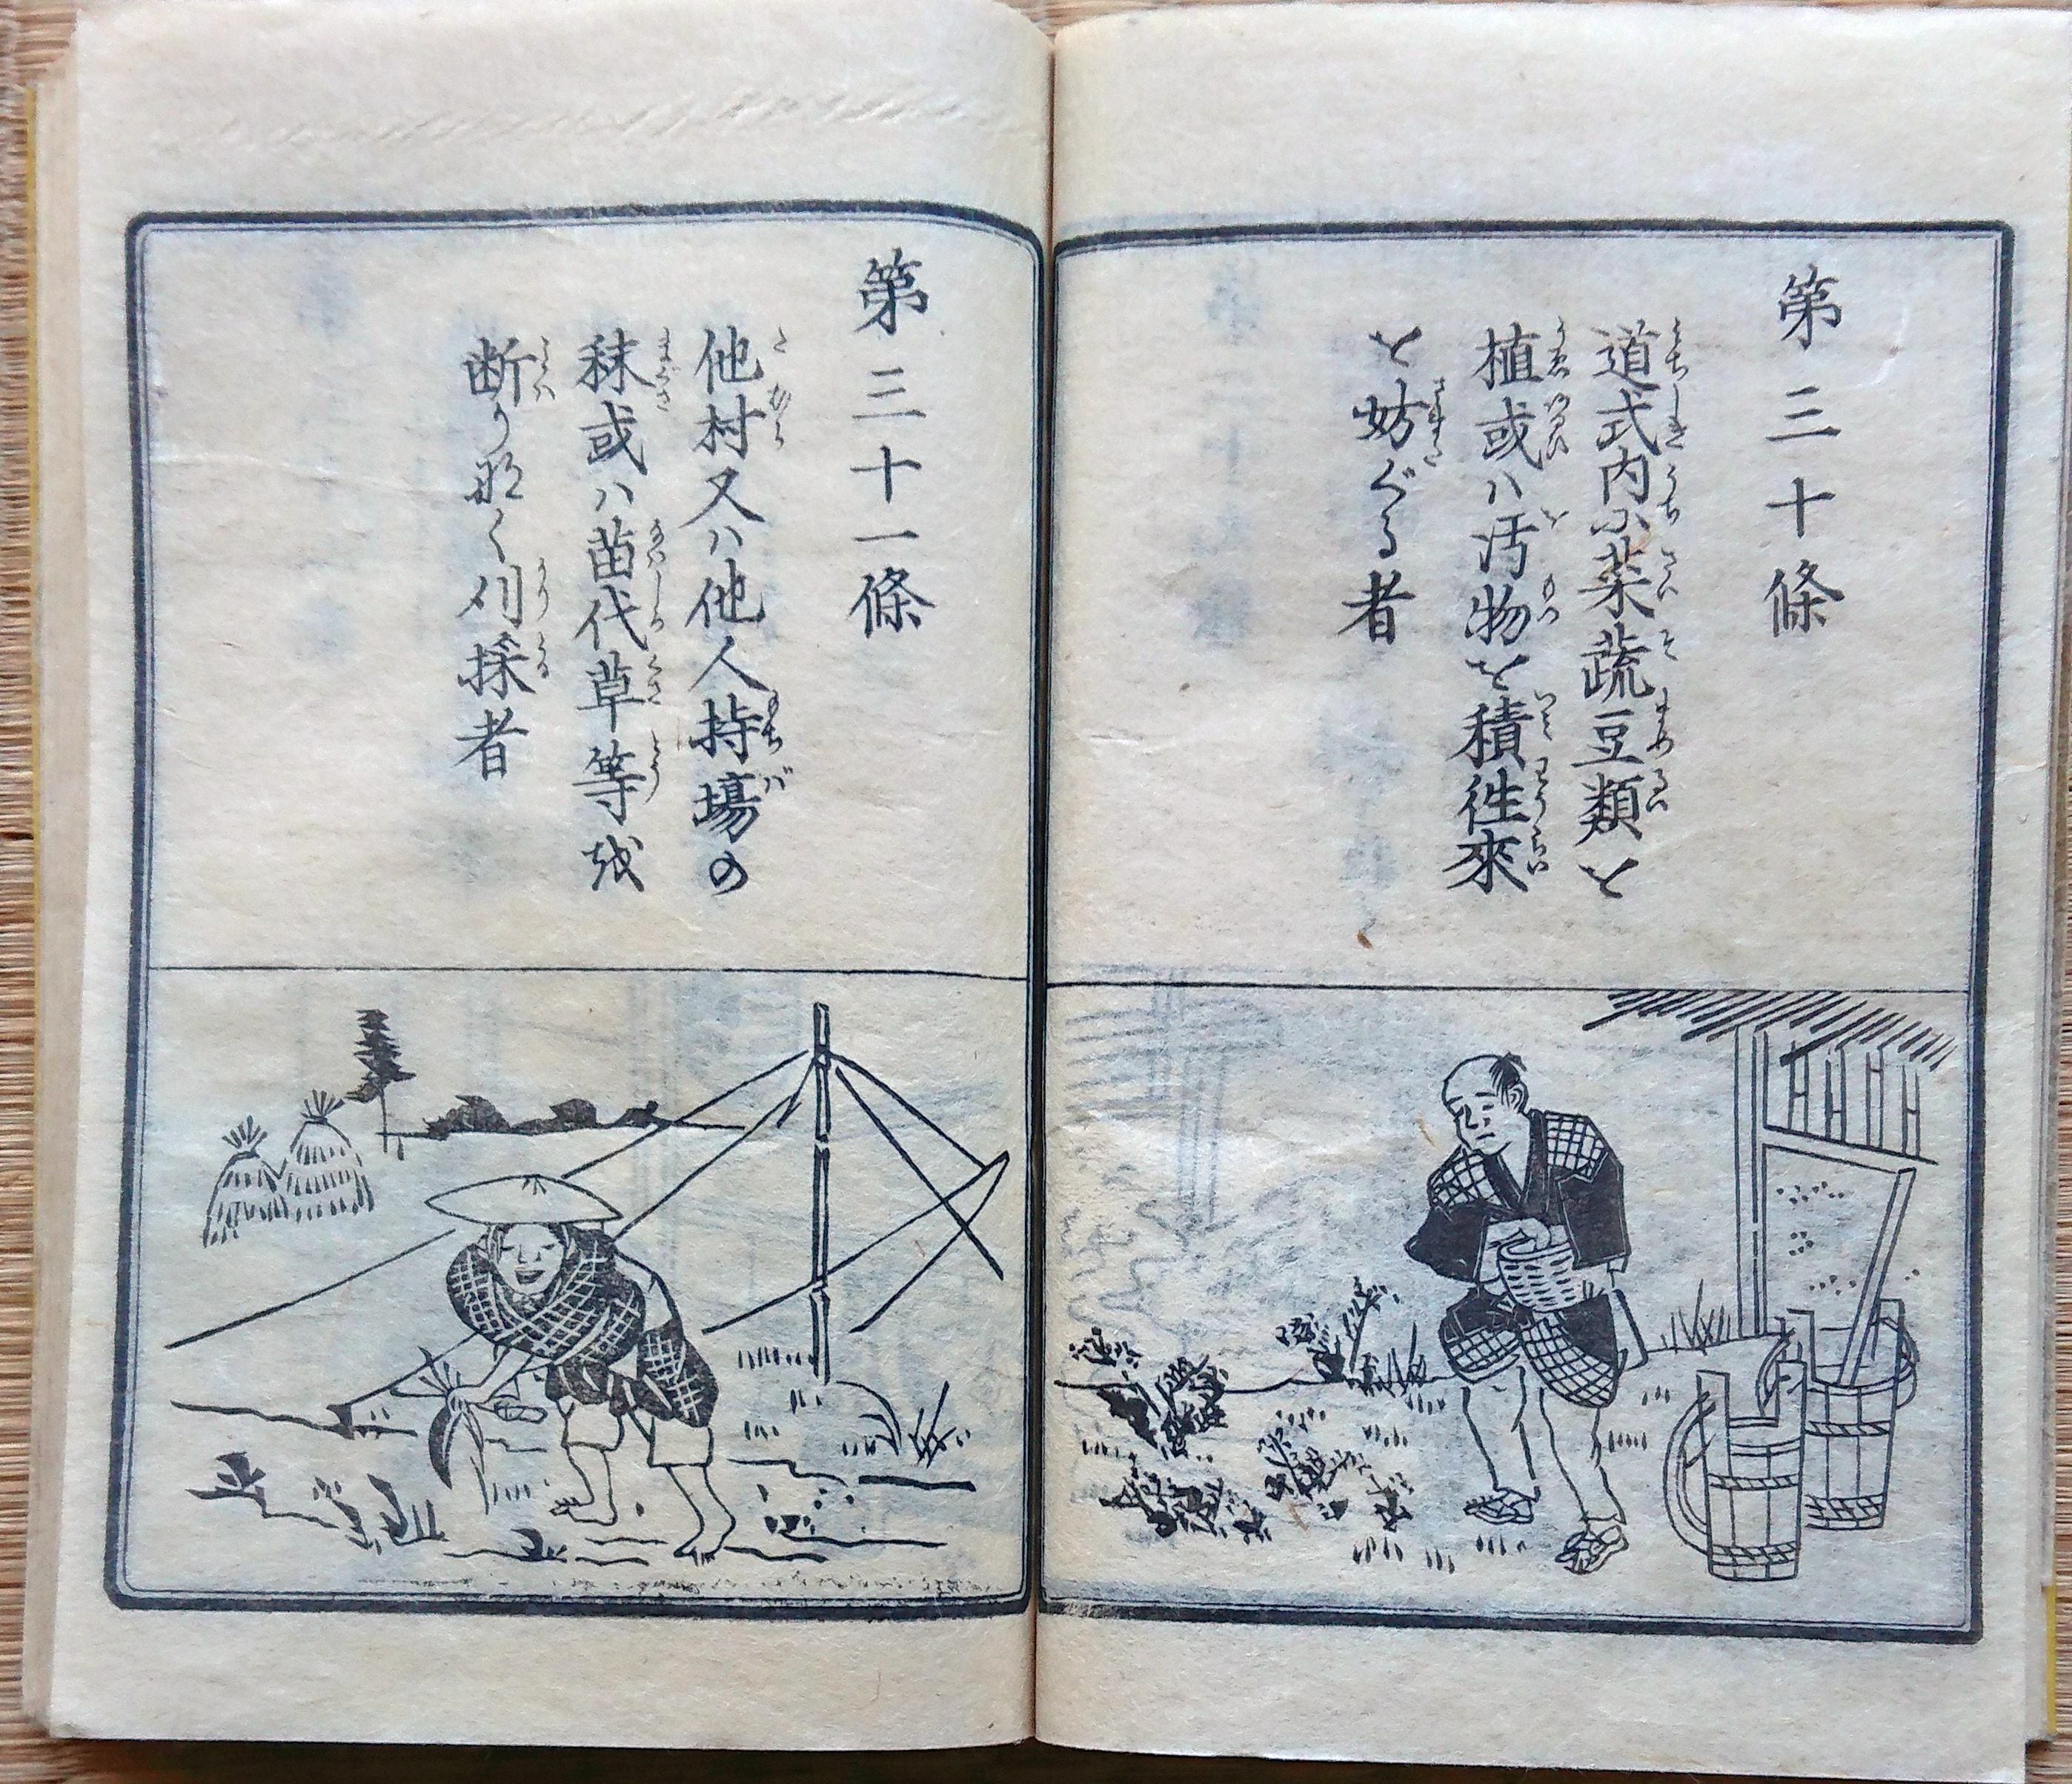 第三十條
道式内に菜蔬豆類を
植或ハ汚物を積徃來
を妨ぐる者
第三十一條
他村又ハ他人持場の
秣或ハ苗代草等を
断りなく刈採者